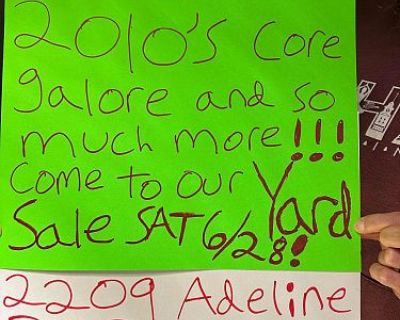 2010's Core
galore and so
much more!!!
Come to our Yard
Sale SAT 6/28!
2209 Adeline